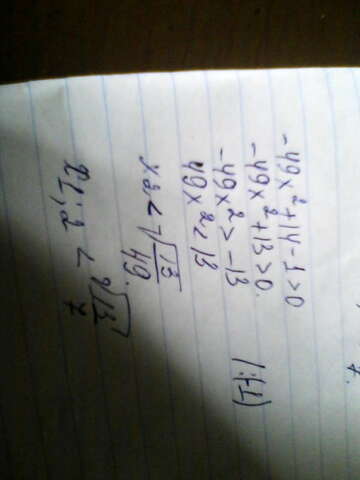 -49x²+14-1>0
-49x²+13>0.
-49x²>-13 /:(-1)
49x²<13
x2<√13/49.
x1,2<√13/7
7.